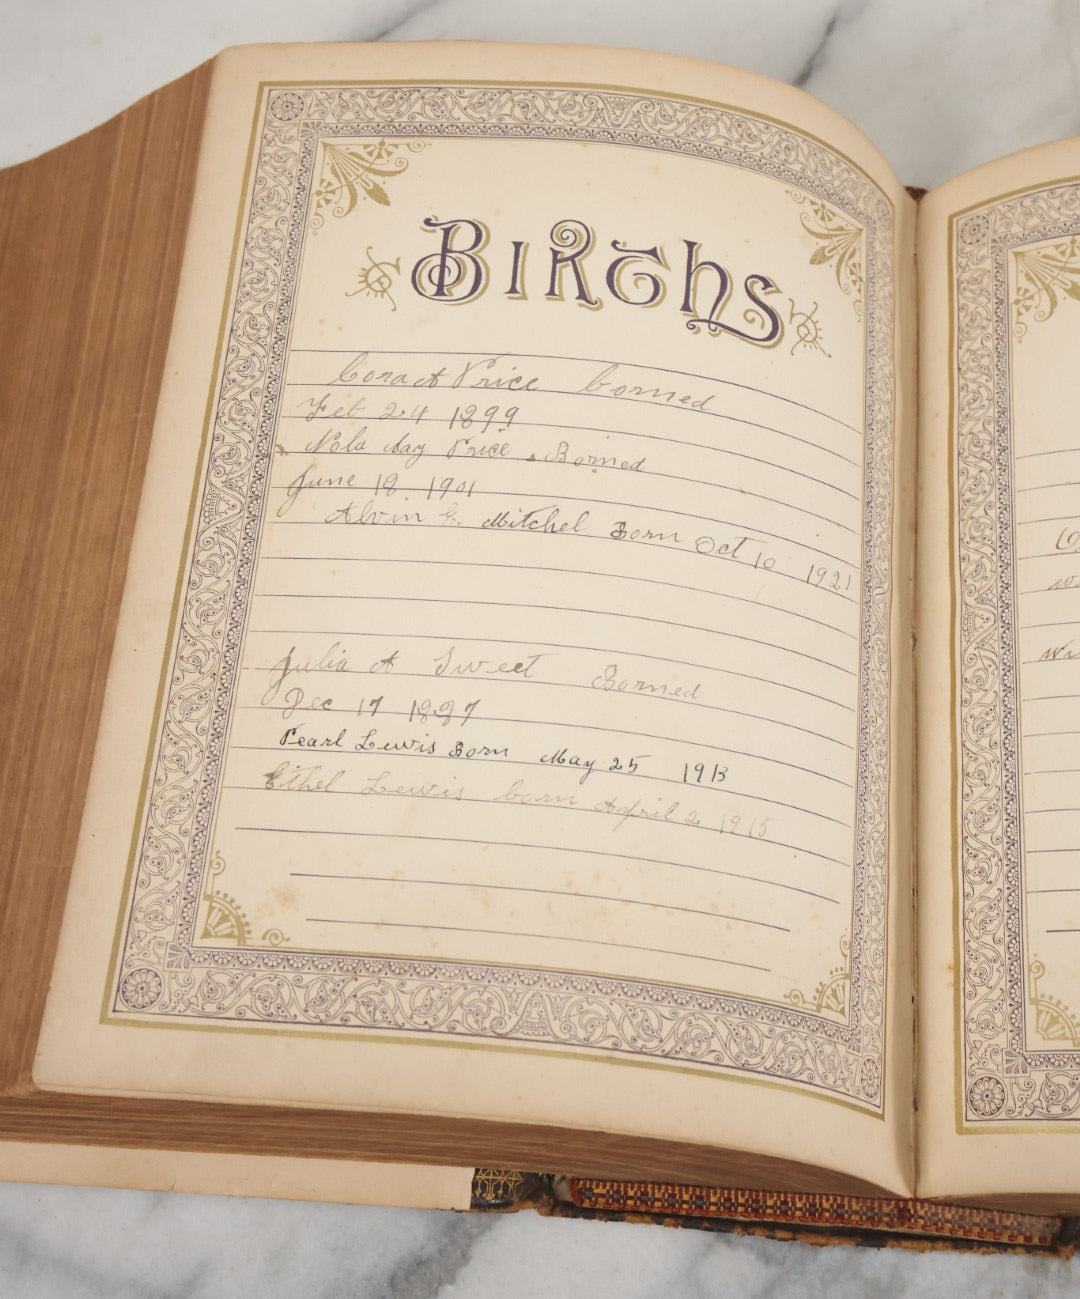 BIRTHS
Cora A Price borned
Feb 24 1899
Nola May Price. Borned
June 18. 1901
Alvin G. Mitchel Born Oct 10 1921
Julia A Sweet Borned
Dec 17 1887
Pearl Lewis Born May 25 1913
Ethel Lewis born April 2 1915